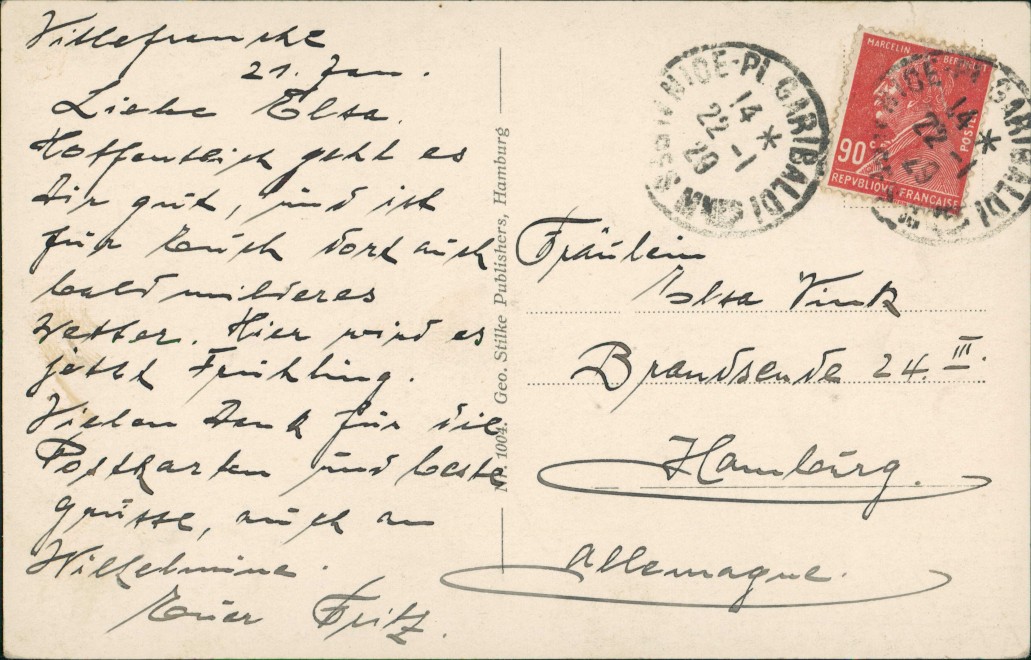 Villefranche
21. Jan.
Liebe Elsa.
Hoffentlich geht es
Dir gut, und ist
für Euch dort auch
bald milderes
Wetter. Hier wird es
jetzt Frühling.
Vielen Dank für die
Postkarten und beste
Grüsse, auch an
Wilhelmine.
Euer Fritz.
Nr. 1004. Geo. Stilke Publishers, Hamburg
NICE-PL. GARIBALDI
14 *
22 -1
29
MARCELIN BERTHELOT
90
POSTES
REPVBLIQVE FRANÇAISE
NICE-PL. GARIBALDI
14 *
22 -1
29
Fräulein
Elsa Vink
Brandsende 24. III.
Hamburg.
Allemagne.